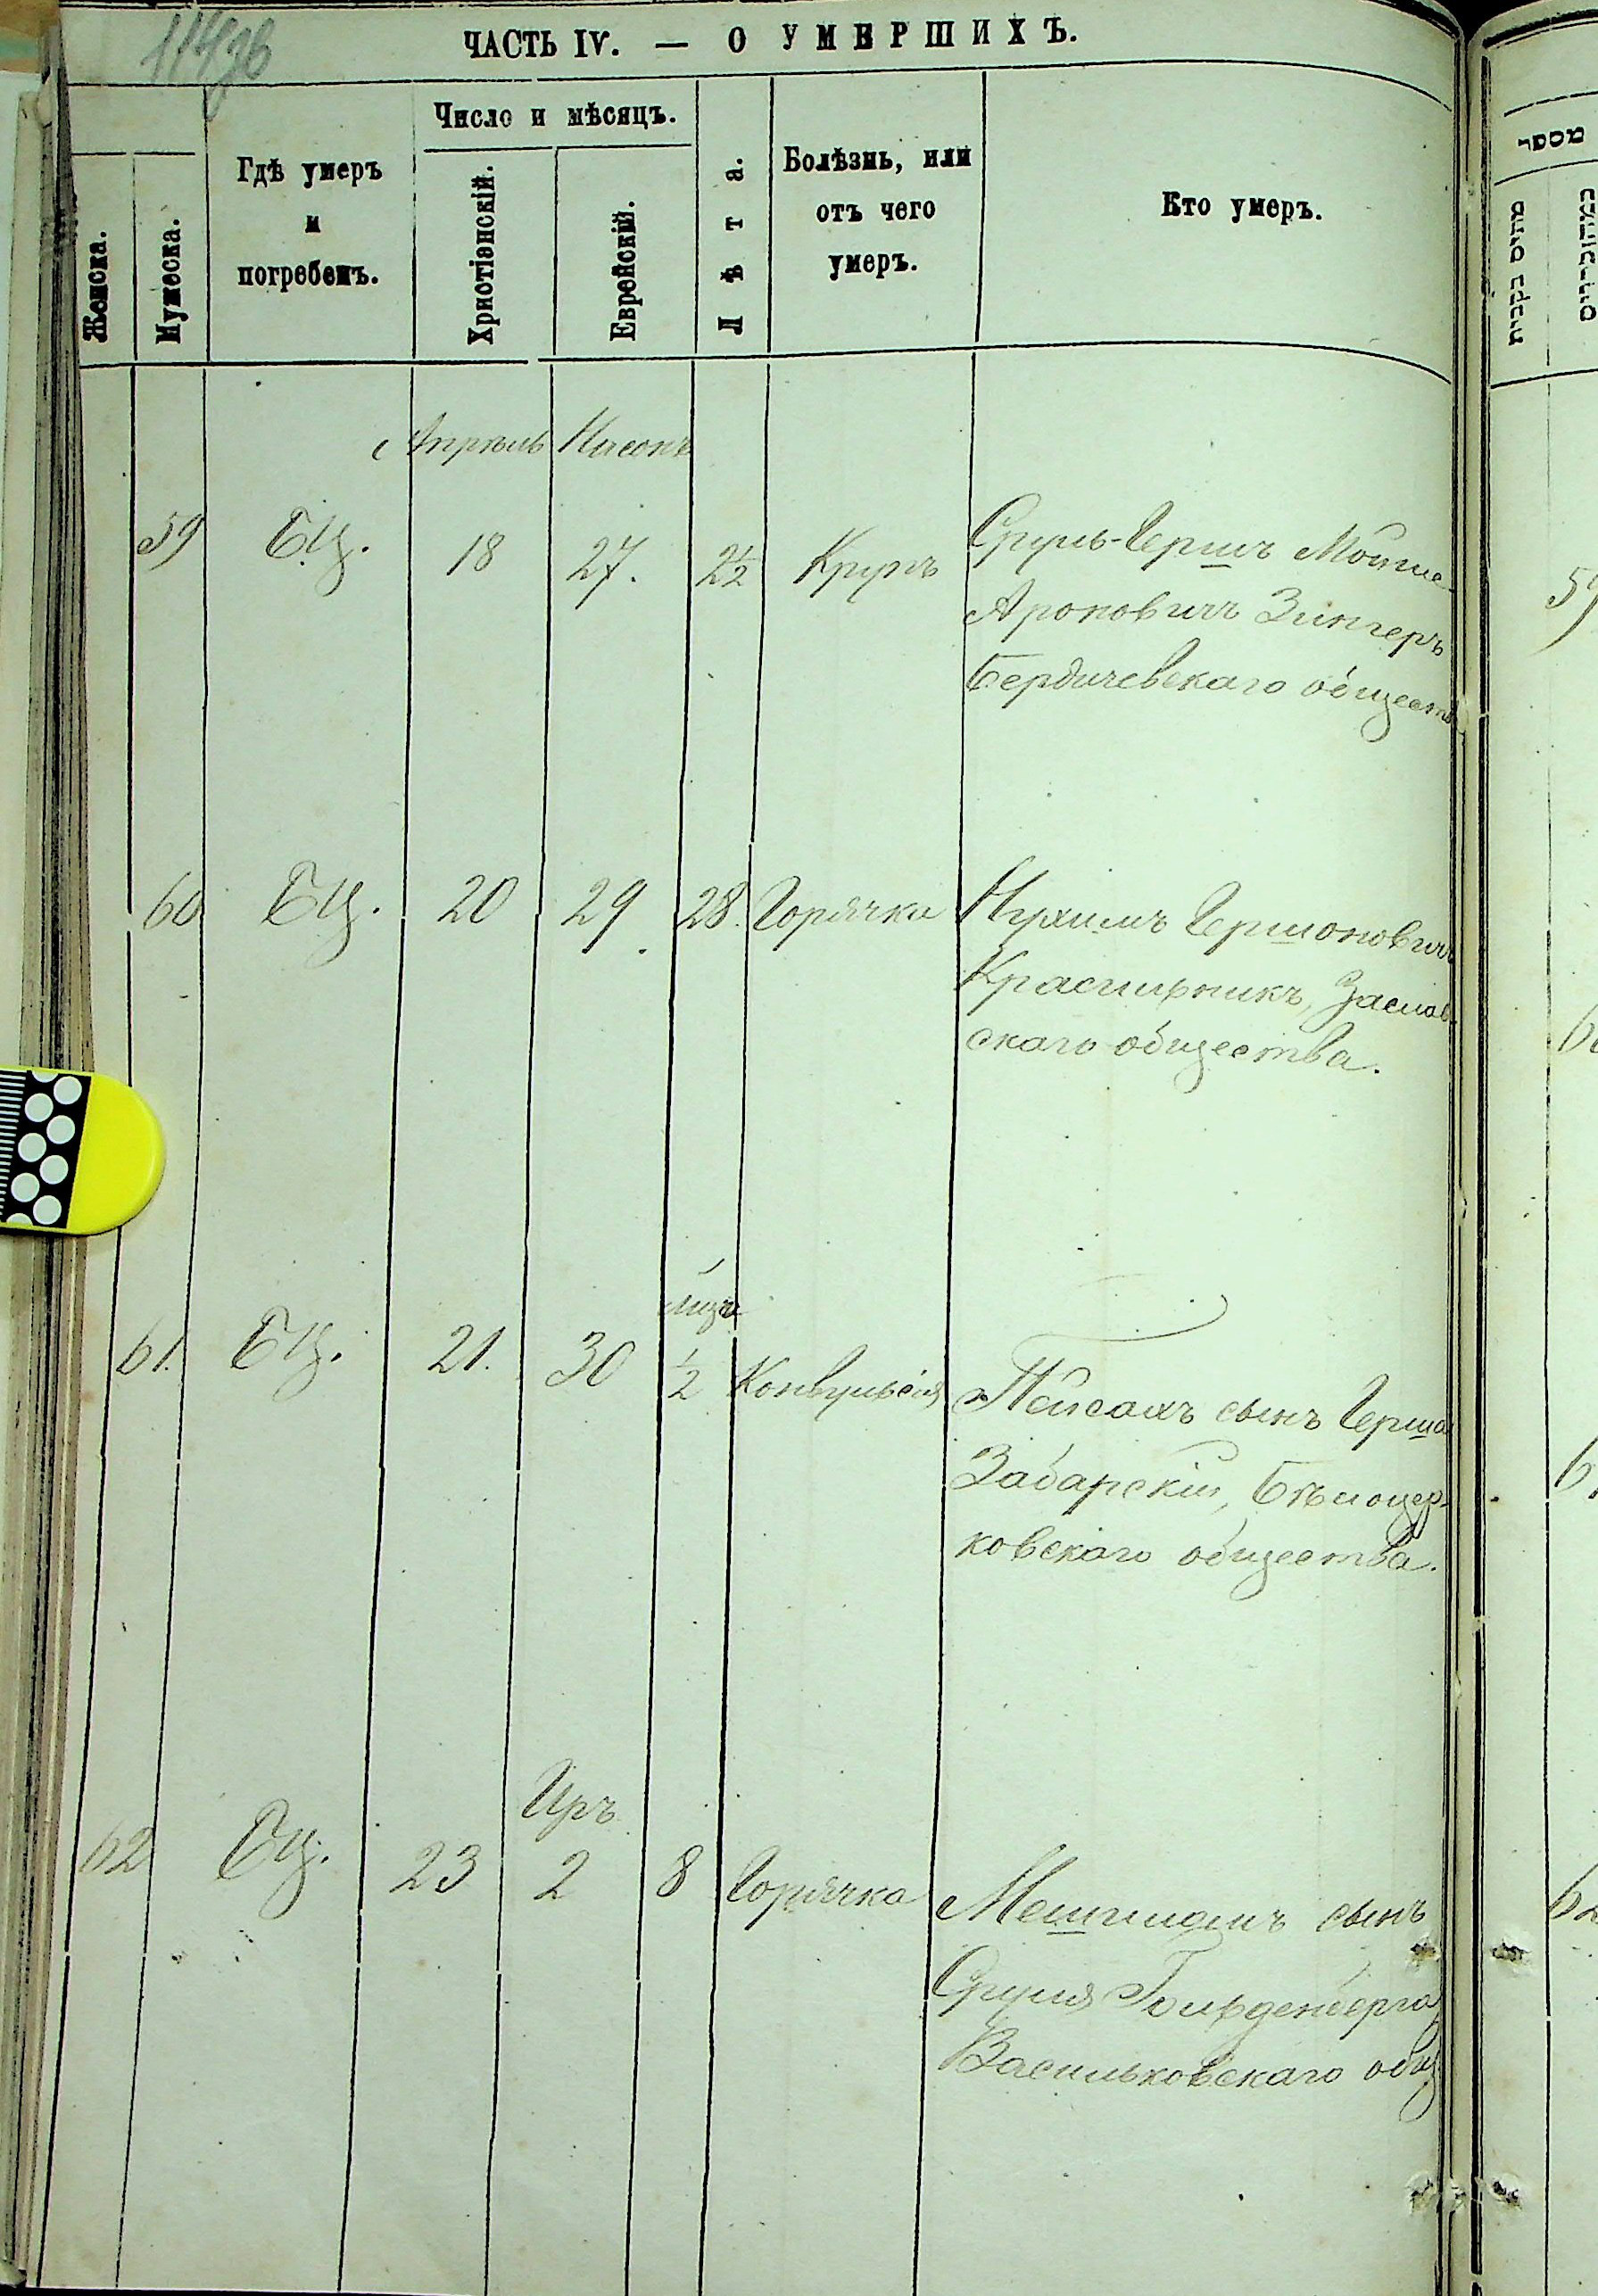 114об
ЧАСТЬ IV. — О УМЕРШИХЪ.
Женска.
Мужеска.
Гдѣ умеръ
и
погребенъ.
Число и мѣсяцъ.
Христіанскій.
Еврейскій.
Лѣта.
Болѣзнь, или
отъ чего
умеръ.
Кто умеръ.
Апрѣль Нисонъ
59 БЦ. 18 27. 2½ Крупъ Сруль-Гершъ Мошко
Ароновичъ Зингеръ
Бердичевскаго обществ
60 БЦ. 20 29. 28. Горячка Нухимъ Гершоновичъ
Красильникъ, Заслав-
скаго общества.
61. БЦ. 21. 30 ½ Конвульсія Пейсахъ сынъ Герша
Забарскій, Бѣлоцер-
ковскаго общества.
Иръ
62 БЦ. 23 2 8 Горячка Мешиламъ сынъ
Сруля Гольденберга
Васильковскаго общ
מספר
59
62